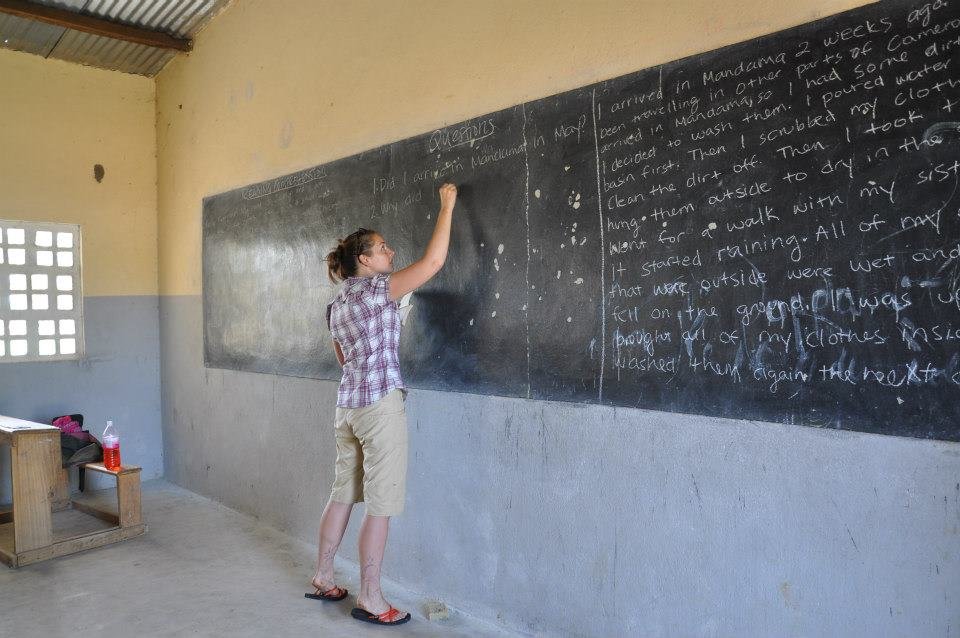 Reading Comprehension
Questions
1. Did I arrive in Mandama in May?
2. Why did I
I arrived in Mandama 2 weeks ago.
been travelling in other parts of Camero
arrived in Mandama, so I had some dirt
I decided to wash them. I poured water
basin first. Then I scrubbed my cloth
clean the dirt off. Then I took t
hung them outside to dry in the
went for a walk with my sist
It started raining. All of my
that were outside were wet and
fell on the ground. I was
brought all of my clothes insid
washed them again the next